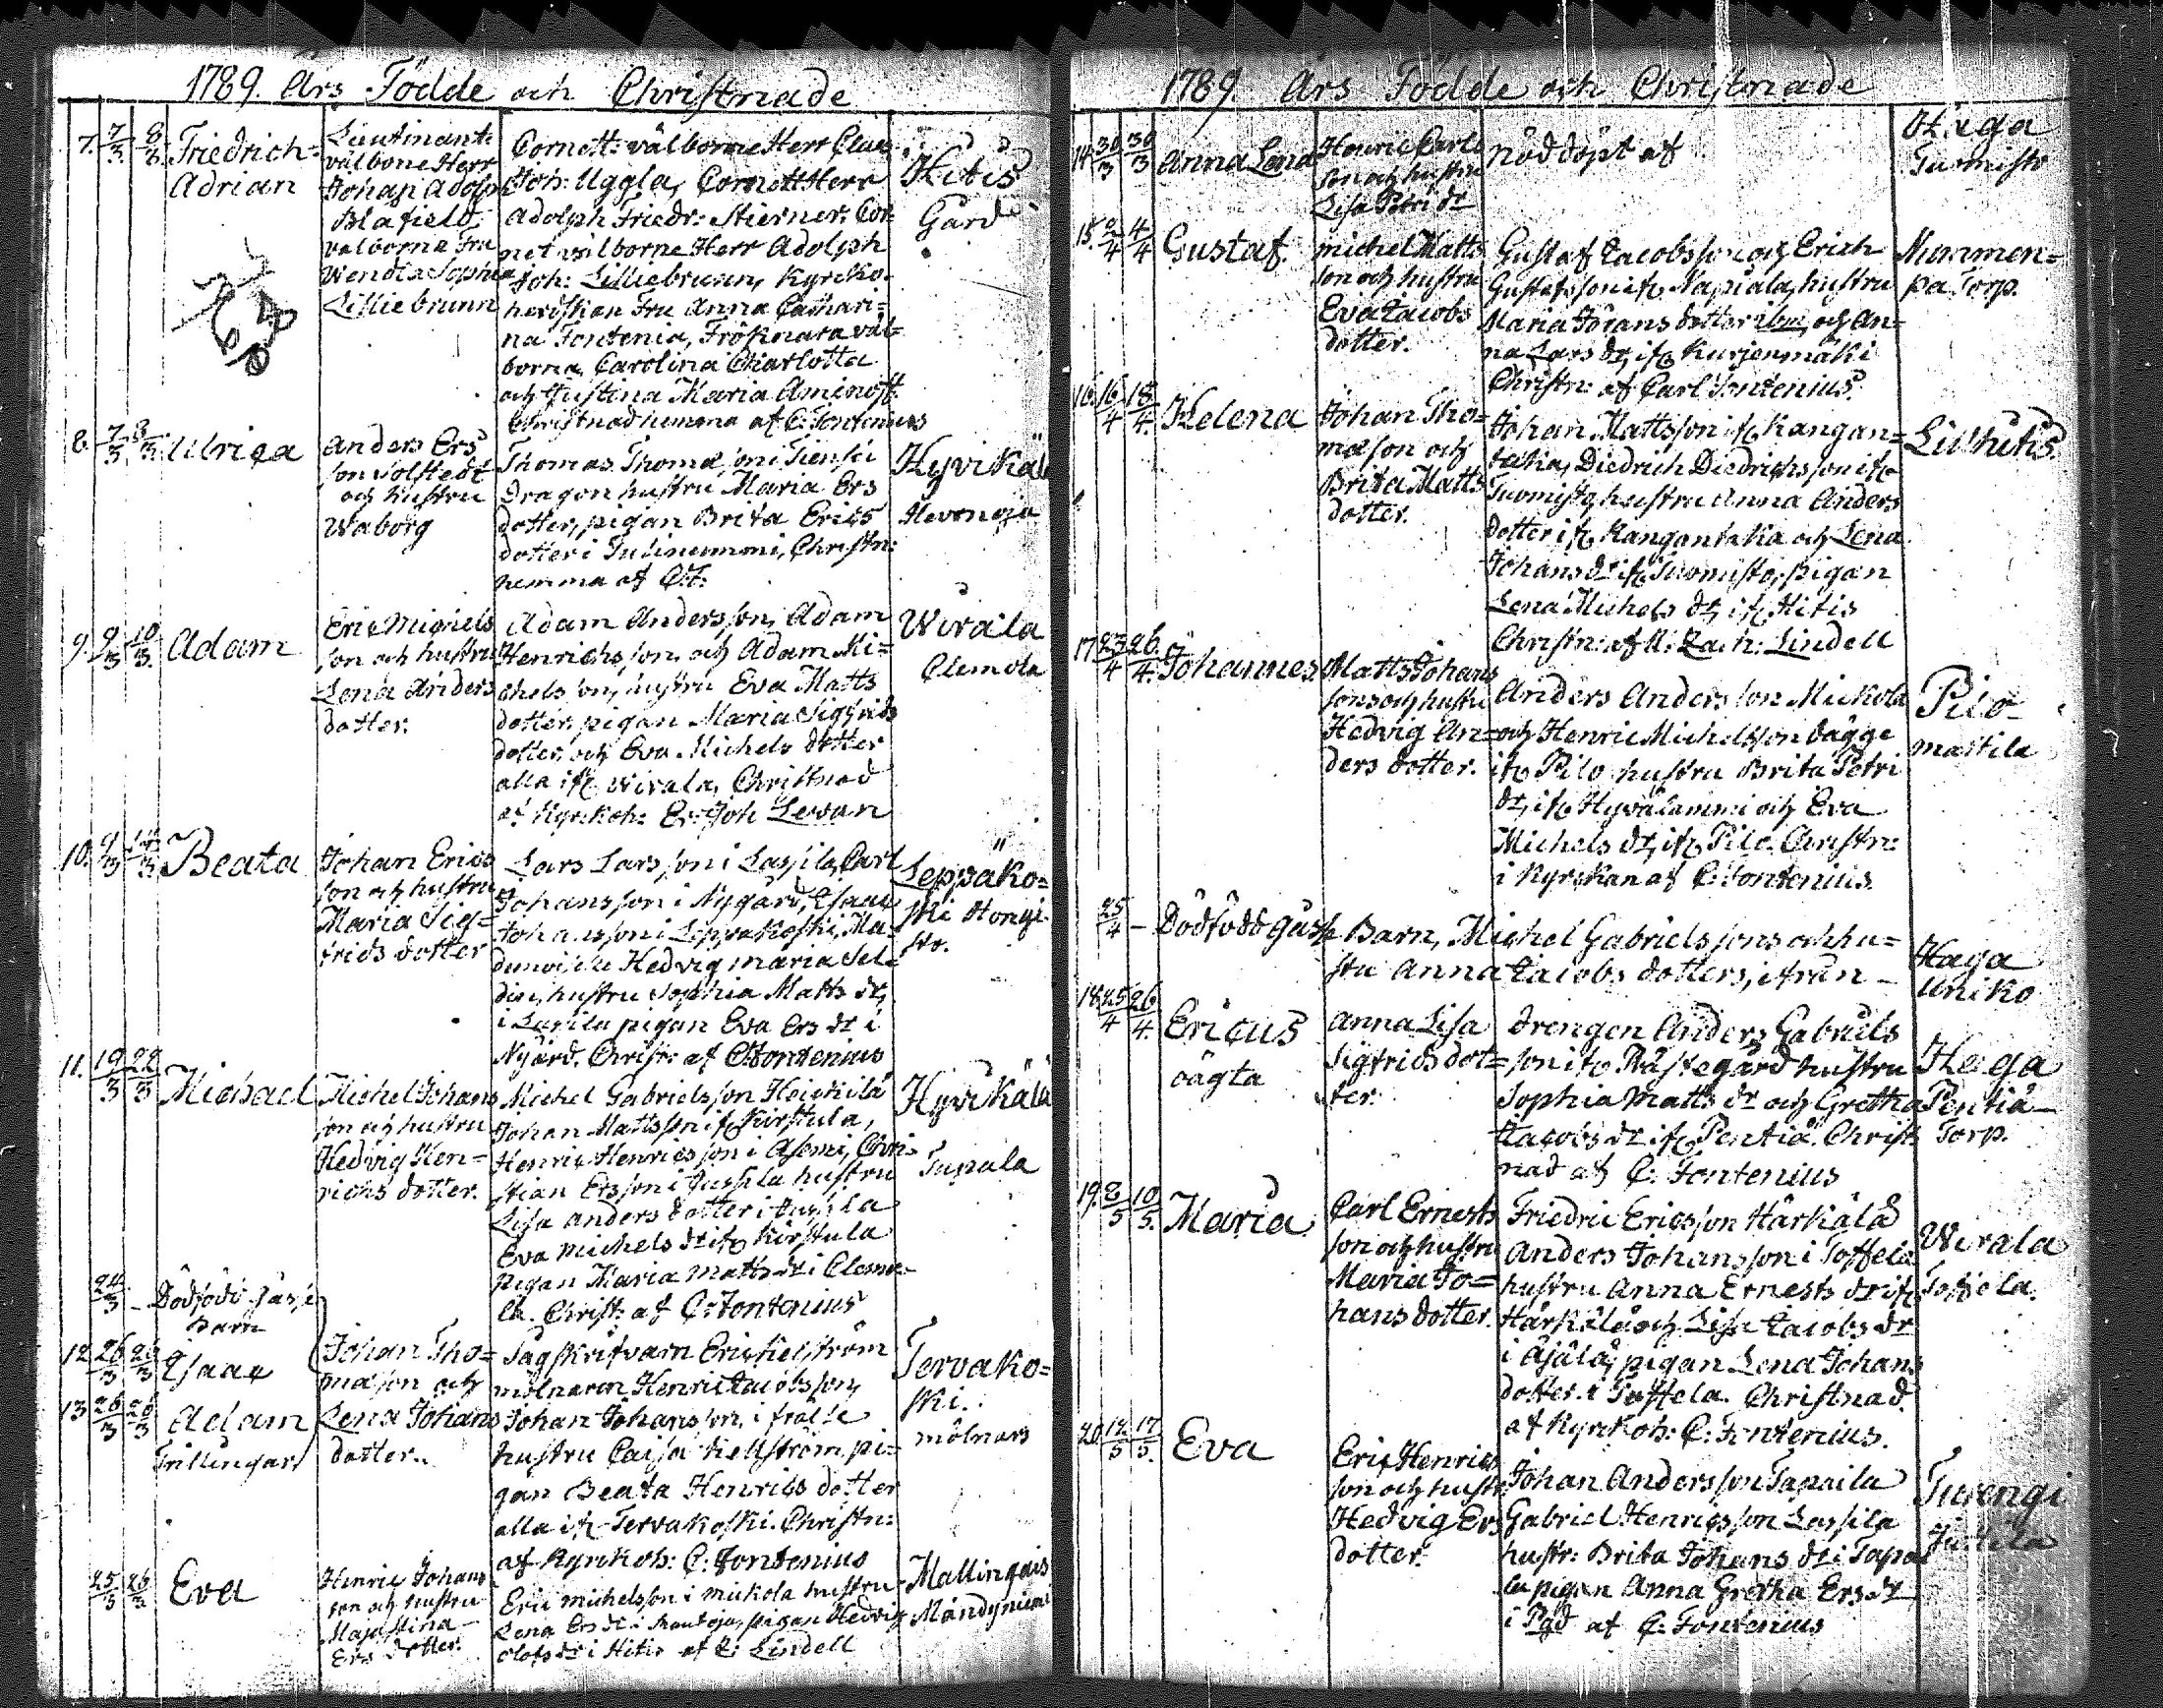 1789. Års Födde och Christnade
7. 7/3 8/3 Friedrich=
Adrian
Lieutinant:
välborne Herr
Johan Adolph
Blafield
välborna Fru
Wendla Sophia
Lilliebrunn
Cornett: välborne Herr Claes
Joh: Uggla, Cornett Herr
Adolph Friedr: Stierner, Cor=
net välborne Herr Adolph
Joh: Lilliebrunn, Kyrcko=
herdskan Fru Anna Cathari=
na Fontenia, Fröknarna väl=
borna Carolina Charlotta
och Justina Maria Aminoff.
Christnad hemma af C: Fontenius
Hitis
Gård
8. 7/3 8/3 Ulrica
Anders Ers
son Solstedt
och hustru
Waborg
Thomas Thomæson i Tienski
Dragon hustru Maria Ers
dotter, pigan Brita Erics
dotter i , Christn:
hemma af C:F:
Hyvikälä
Hevonoja
9. 9/3 10/3 Adam
Eric Michels
son och hustru
Lena Anders
dotter.
Adam Andersson, Adam
Henrichsson, och Adam Mi=
chelsson, hustru Eva Matts
dotter, pigan Maria Sigfrids
dotter, och Eva Michels dotter
alla ifr Wirala, Christnad
af Kyrckoh: Er: Joh Levan
Wirala
Clemola
10. 9/3 /3 Beata
Johan Erics
son och hustru
Maria Sig=
frids dotter
Lars Larsson i Lassila, Carl
Johansson i Nygård, Isaac
Johansson i Leppäkoski, Ma=
demoiselle Hedvig Maria Sel=
din, hustru Sophia Matts dr,
i Lassila pigan Eva Ers dr i
Nygård. Christ: af C: Fontenius
Leppäko=
ski Hongi=
sto.
11. 19/3 22/3 Michael
Michel Johans
son och hustru
Hedvig Hen=
richs dotter.
Michel Gabrielsson Heickilä
Johan Mattsson ifr Kirstula,
Henric Henricsson i Asemi, Chri=
stian Ersson i Jussila hustru
Lisa Anders dotter i Jussila
Eva Michels dr ifr Kirstula
Pigan Maria Matts dr i Clemo=
la. Christ: af C: Fontenius
Hyvikälä
Tupala
24/3 – Dödfödt
Barn
12. 26/3 26/3 Isaac
13. 26/3 26/3 Adam
Trillingar
Johan Tho=
mæson och
Lena Johans
dotter..
Sågskrifvarn Eric Kelström
mölnaren Henric Jacobsson,
Johan Johansson i frälse
hustru Caisa Kellström, pi=
gan Beata Henrics dotter
alla ifr Tervakoski. Christn:
af Kyrckoh: C: Fontenius
Tervako=
ski.
mölnars
25/3 26/3 Eva
Henric Johans
son och hustru
Maja Stina
Ers dotter.
Eric Michelsson i Mickola hustru
Lena Ers dr i , pigan Hedvig
Olofs dr i Hitis af Z: Lindell
Mallingais
Mändyniemi
1789. Års Födde och Christnade
14. 30/3 30/3 Anna Lena
Henric Carls
son och hustru
Lisa Petri dr
nöddöpt af
Haga
Tuomisto
15. 2/4 4/4 Gustaf.
Michel Matts
son och hustru
Eva Jacobs
dotter.
Gustaf Jacobsson och Erich
Gustafsson ifr Napiala, hustru
Maria Jörans dotter ibm, och An=
na Lars dr, ifr Kurjenmäki
Christn: af Carl Fontenius.
Nummen=
pä Torp.
16. 16/4 18/4. Helena
Johan Tho=
mæson och
Brita Matts
dotter.
Johan Mattsson ifr Kangan=
taka, Diedrich Diedrichsson ifr
Tuomisto, hustru Anna Anders
dotter ifr Kangantaka och Lena
Johans dr ifr Tuomisto, pigan
Lena Michels dr, ifr Hitis
Christn: af A: Zach: Lindell
Lillhitis
17. 23/4 26/4. Johannes
Matts Johans
sons och hustru
Hedvig An=
ders dotter.
Anders Andersson Mickola
och Henric Michelsson Vägge
ifr Pilo hustru Brita Petri
dr, ifr Hyvälammi och Eva
Michels dr, ifr Pilo. Christn:
i Kyrckan af C: Fontenius.
Pilo
mattila
25/4 – Dödfödd gåsse Barn, Michel Gabrielssons och hu=
stru Anna Jacobs dotters, ifrån –
Haga
Uniko
18. 25/4 26/4. Ericus
oägta
Anna Lisa
Sigfrids dot=
ter.
Drengen Anders Gabriels
son ifr Prästegård hustru
Sophia Matts dr och Gretha
Jacobs dr ifr Pentiä. Christ
nad af C: Fontenius
Haga
Pentiä
Torp.
19. 8/5 10/5. Maria
Carl Ernests
son och hustru
Maria Jo=
hans dotter.
Friedric Ericsson Härkälä
Anders Johansson i Toffela
hustru Anna Ernests dr ifr
Härkälä och Lisa Jacobs dr
i Äjälä, pigan Lena Johans
dotter i Toffela. Christnad.
af Kyrckoh: C: Fontenius.
Wirala
Toffela.
20. 12/5 17/5. Eva
Eric Henrics
son och hustru
Hedvig Ers
dotter.
Johan Andersson Tapaila
Gabriel Henricsson Lassila
hustr: Brita Johans dr i Tapai
la pigan Anna Gretha Ers dr
i Pgd af C: Fontenius
Turengi